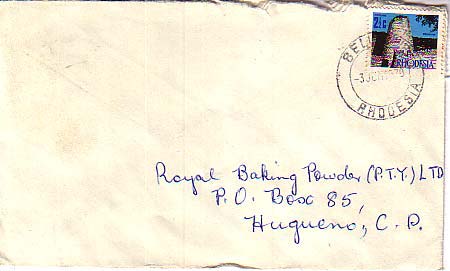 2½c
RHODESIA
RHODESIA
Royal Baking Powder (P.T.Y.) LTD
P.O. Box 85,
Hugueno, C.P.